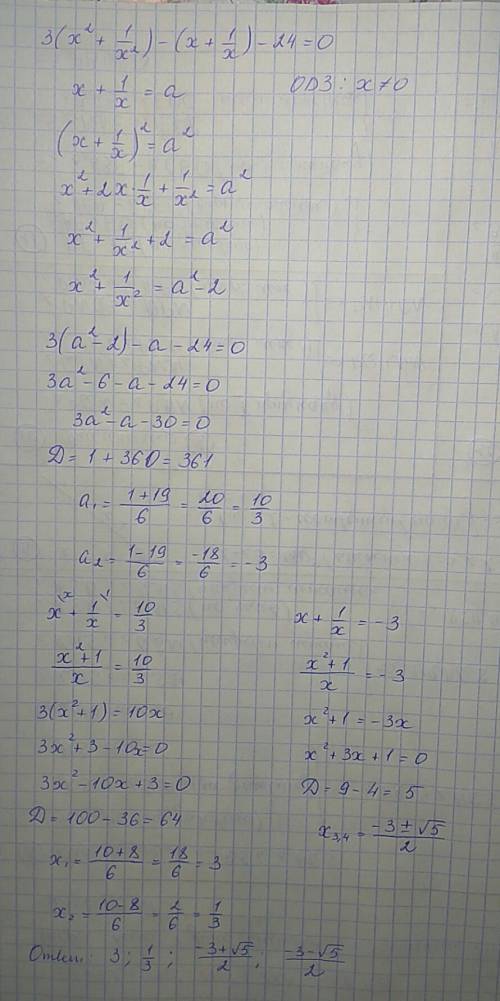 3(x² + 1/x²) - (x + 1/x) - 24 = 0
x + 1/x = a
ОДЗ: x ≠ 0
(x + 1/x)² = a²
x² + 2x · 1/x + 1/x² = a²
x² + 1/x² + 2 = a²
x² + 1/x² = a² - 2
3(a² - 2) - a - 24 = 0
3a² - 6 - a - 24 = 0
3a² - a - 30 = 0
Д = 1 + 360 = 361
a₁ = (1+19)/6 = 20/6 = 10/3
a₂ = (1-19)/6 = -18/6 = -3
x\ˣ + 1/x\¹ = 10/3
(x²+1)/x = 10/3
3(x²+1) = 10x
3x² + 3 - 10x = 0
3x² - 10x + 3 = 0
Д = 100 - 36 = 64
x₁ = (10+8)/6 = 18/6 = 3
x₂ = (10-8)/6 = 2/6 = 1/3
x + 1/x = -3
(x²+1)/x = -3
x² + 1 = -3x
x² + 3x + 1 = 0
Д = 9 - 4 = 5
x₃,₄ = (-3 ± √5)/2
Ответ: 3; 1/3; (-3+√5)/2; (-3-√5)/2